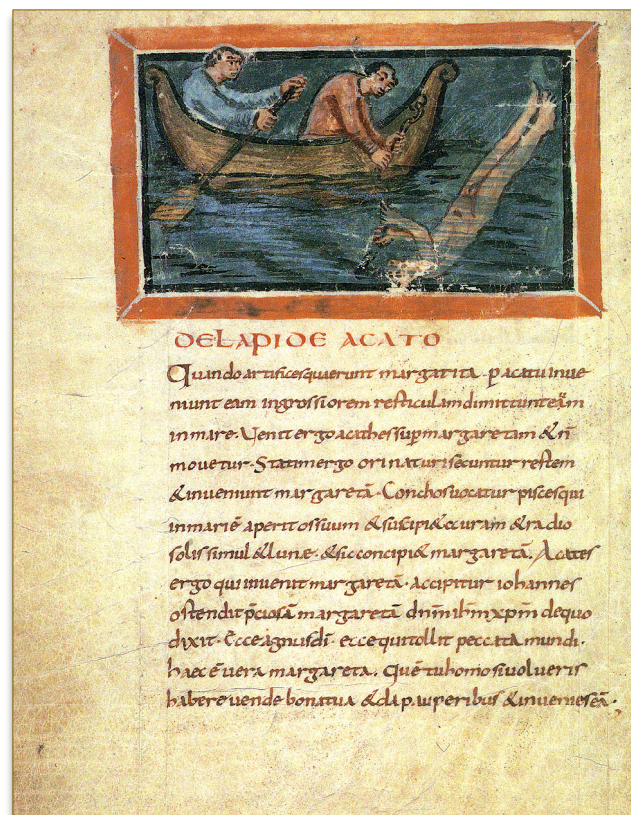 DE LAPIDE ACATO
Quando artifices quaerunt margarita. p acatu inue
niunt eam ingrossiorem resticulam dimittunt eam
in mare. Uenit ergo acathes sup margaretam & n̄
mouetur. Statim ergo orinaturi secuntur restem
& inueniunt margaretā. Conchos uocatur pisces qui
in mari ē aperit os suum & suscipi& ccuram & radio
solis simul & lunae. & sic concipi& margaretā. Acates
ergo qui inuenit margaretā. accipitur iohannes
ostendit p̄ciosā margaretā dnm̄ ihm̄ xpm̄ de quo
dixit. Ecce agnus dī. ecce qui tollit peccata mundi.
haec ē uera margareta. Quē tu homo si uolueris
habere uende bona tua & da pauperibus & inuenies eā.